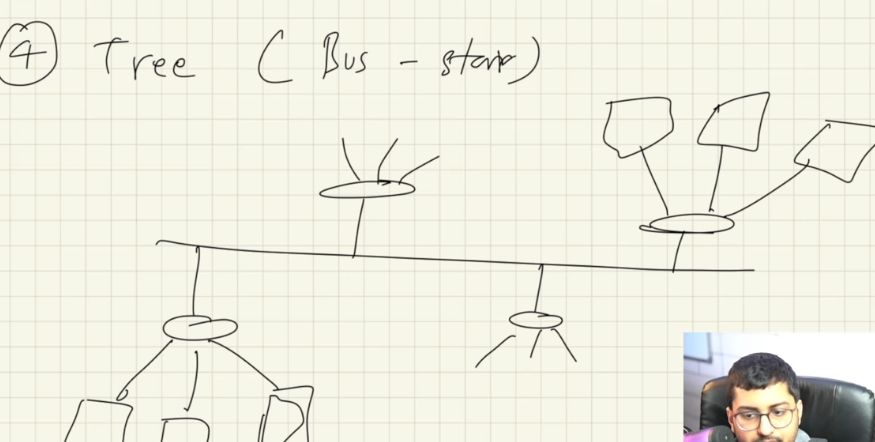 ④ Tree (Bus - star)